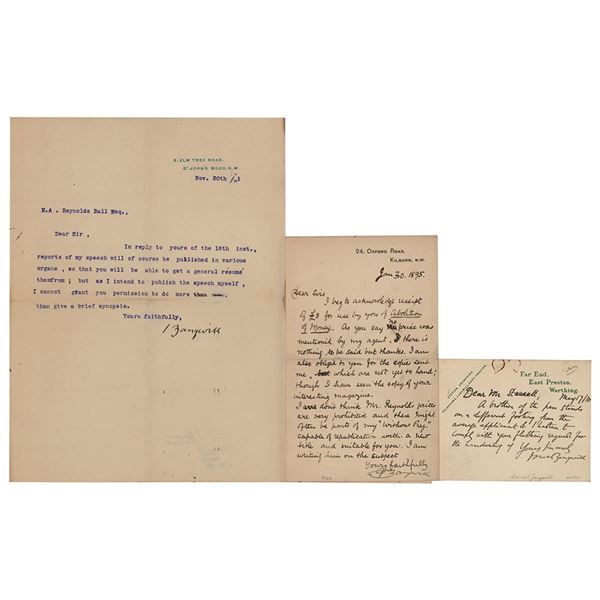 8, ELM TREE ROAD,
ST JOHN'S WOOD, N.W.
Nov. 20th
E.A. Reynolds Ball Esq.,
Dear Sir,
In reply to yours of the 18th inst.,
reports of my speech will of course be published in various
organs, so that you will be able to get a general resume
themfrom; but as I intend to publish the speech myself,
I cannot grant you permission to do more
than give a brief synopsis.
Yours faithfully,
I Zangwill
24. OXFORD ROAD,
KILBURN, N.W.
Jan 30. 1895.
Dear Sirs
I beg to acknowledge receipt
of £3 for use by you of Abolition
of Money. As you say the price was
mentioned by my agent, & there is
nothing to be said but thanks. I am
also obliged to you for the copies sent
me, which are not yet to hand;
though I have seen the copy of your
interesting magazine.
I don't think Mr. Reynolds' prices
are very prohibitive and there might
often be parts of my "Without Prej."
capable of republication with a new
title and suitable for you. I am
writing him on the subject
Yours faithfully
I Zangwill
FAR END,
EAST PRESTON,
WORTHING.
May 17/10
Dear Mr
A brother of the pen stands
on a different footing from the
average applicant & I hasten to
comply with your flattering request for
the handwriting of Yours sincerely
Israel Zangwill
Israel Zangwill